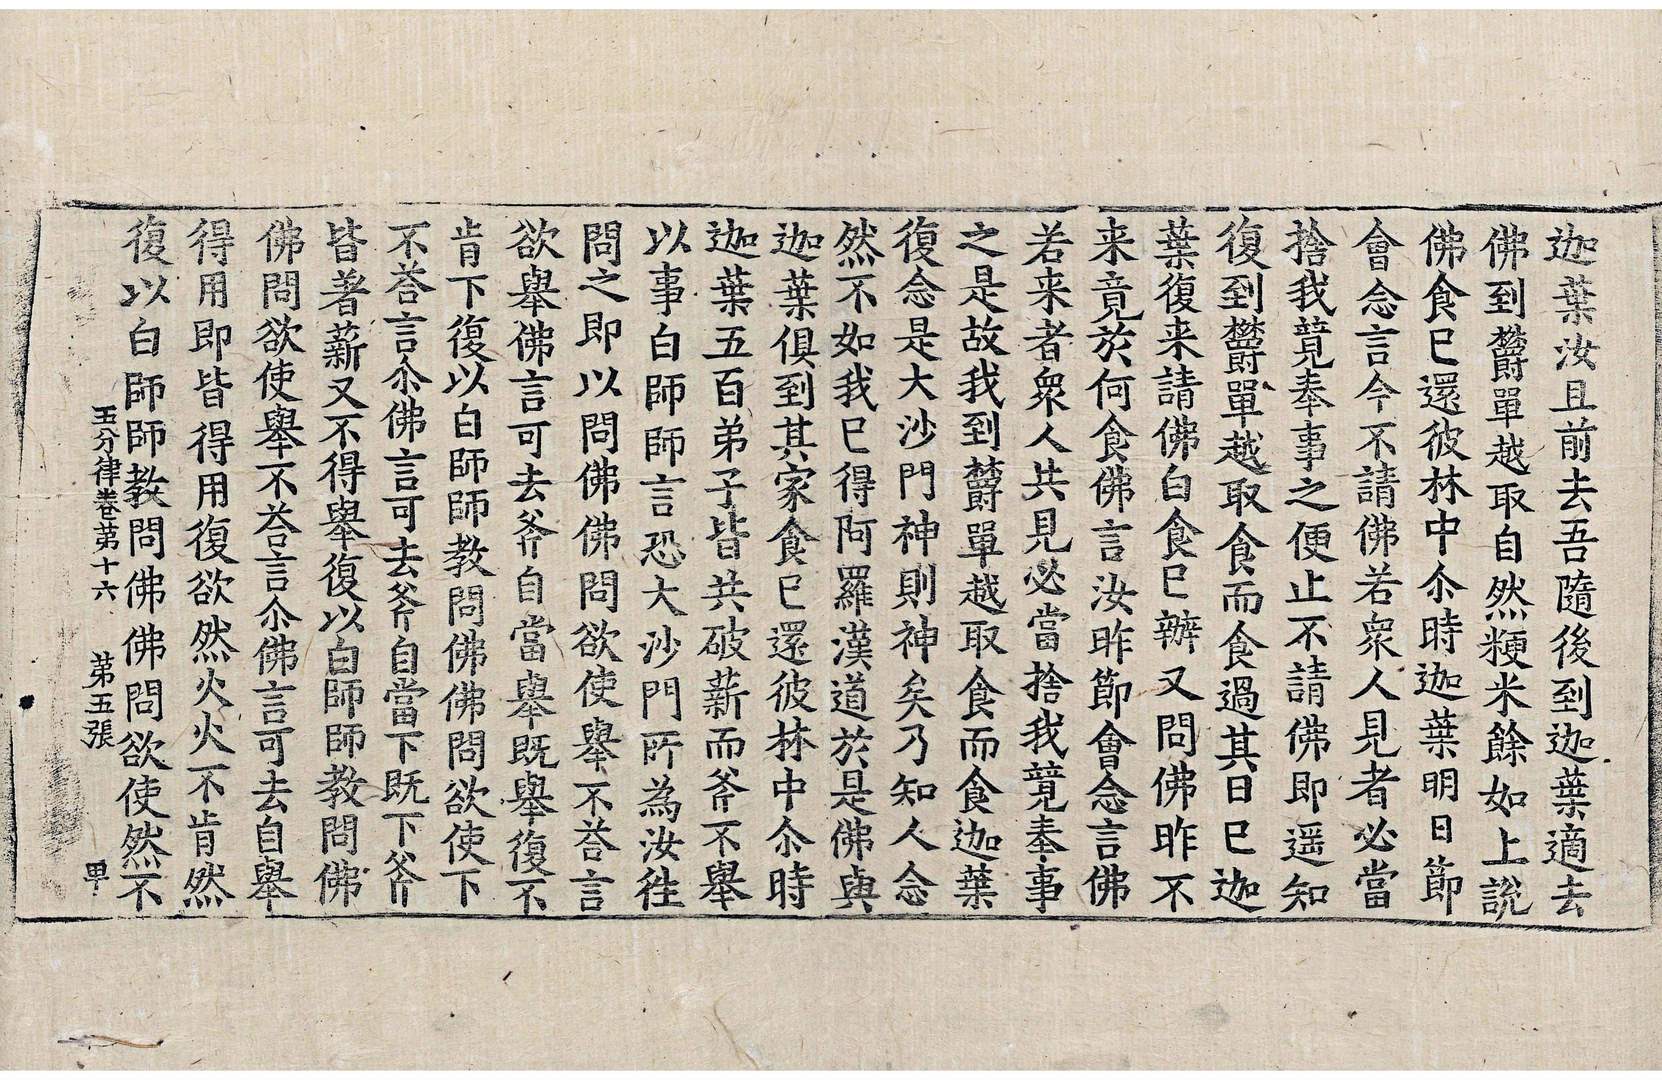 迦葉汝且前去吾隨後到迦葉適去
佛到欝單越取自然粳米餘如上說
佛食已還彼林中尒時迦葉明日節
會念言今不請佛若衆人見者必當
捨我競奉事之便止不請佛即遥知
復到欝單越取食而食過其日已迦
葉復来請佛白食已辦又問佛昨不
来竟於何食佛言汝昨節會念言佛
若来者衆人共見必當捨我競奉事
之是故我到欝單越取食而食迦葉
復念是大沙門神則神矣乃知人念
然不如我已得阿羅漢道於是佛與
迦葉俱到其家食已還彼林中尒時
迦葉五百弟子皆共破薪而斧不舉
以事白師師言恐大沙門所為汝徃
問之即以問佛佛問欲使舉不荅言
欲舉佛言可去斧自當舉既舉復不
肯下復以白師師教問佛佛問欲使下
不荅言尒佛言可去斧自當下既下斧
皆著薪又不得舉復以白師師教問佛
佛問欲使舉不荅言尒佛言可去自舉
得用即皆得用復欲然火火不肯然
復以白師師教問佛佛問欲使然不
五分律卷第十六 第五張 甲